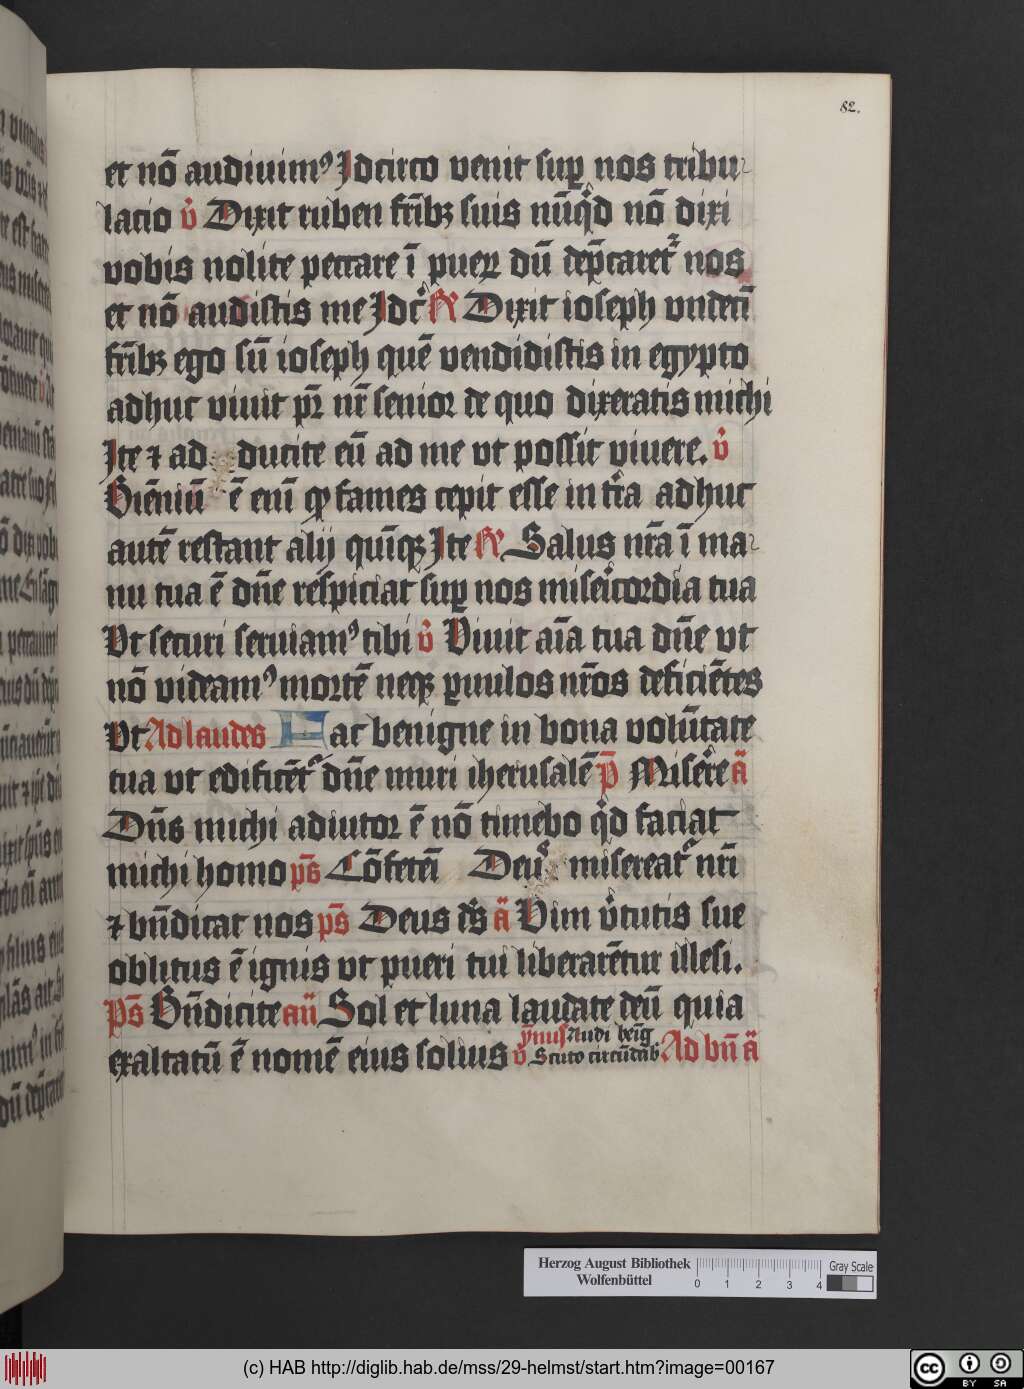 82.
et nō audiuimꝰ Jdcirco venit sup̱ nos tribu
lacio v̓ Dixit ruben fr̄ibꝫ suis nūqͥd nō dixi
vobis nolite peccare ī pueꝝ dū dep̄caret᷑ nos
et nō audistis me Jdcͥ ꝶ Dixit ioseph vndecī
fr̄ibꝫ ego sū ioseph quē vendidistis in egypto
adhuc viuit pr̄ nr̄ senior de quo dixeratis michi
Jte ⁊ ad ducite eū ad me vt possit viuere. v̓
Biēniū ē enī ꝙ fames cepit esse in tr̄a adhuc
autē restant alij quīqꝫ Jte ꝶ Salus nr̄a ī ma
nu tua ē dn̄e respiciat sup̱ nos miseͥicordia tua
Vt securi seruiamꝰ tibi v̓ Viuit aīa tua dn̄e vt
nō videamꝰ mortē neqꝫ ꝑuulos nr̄os deficiētes
Vt Ad laudes Fac benigne in bona volūtate
tua vt edificēt᷑ dn̄e muri iherusalē p̄ Miser̄e ā
Dn̄s michi adiutor ē nō timebo qͥd faciat
michi homo ps̄ Cōfetēī Deuˢ misereat᷑ nr̄i
⁊ bn̄dicat nos ps̄ Deus ds̄ ā Vim v̓tutis sue
oblitus ē ignis vt pueri tui liberarētur illesi.
Ps̄ Bn̄dicite añ Sol et luna laudate deū quia
exaltatū ē nomē eius solius v̓ Scuto circūdab᷑ Ad bn̄ ā
ẏnus Audi beīg
Herzog August Bibliothek
Wolfenbüttel
0 1 2 3 4
Gray Scale
(c) HAB http://diglib.hab.de/mss/29-helmst/start.htm?image=00167
cc BY SA